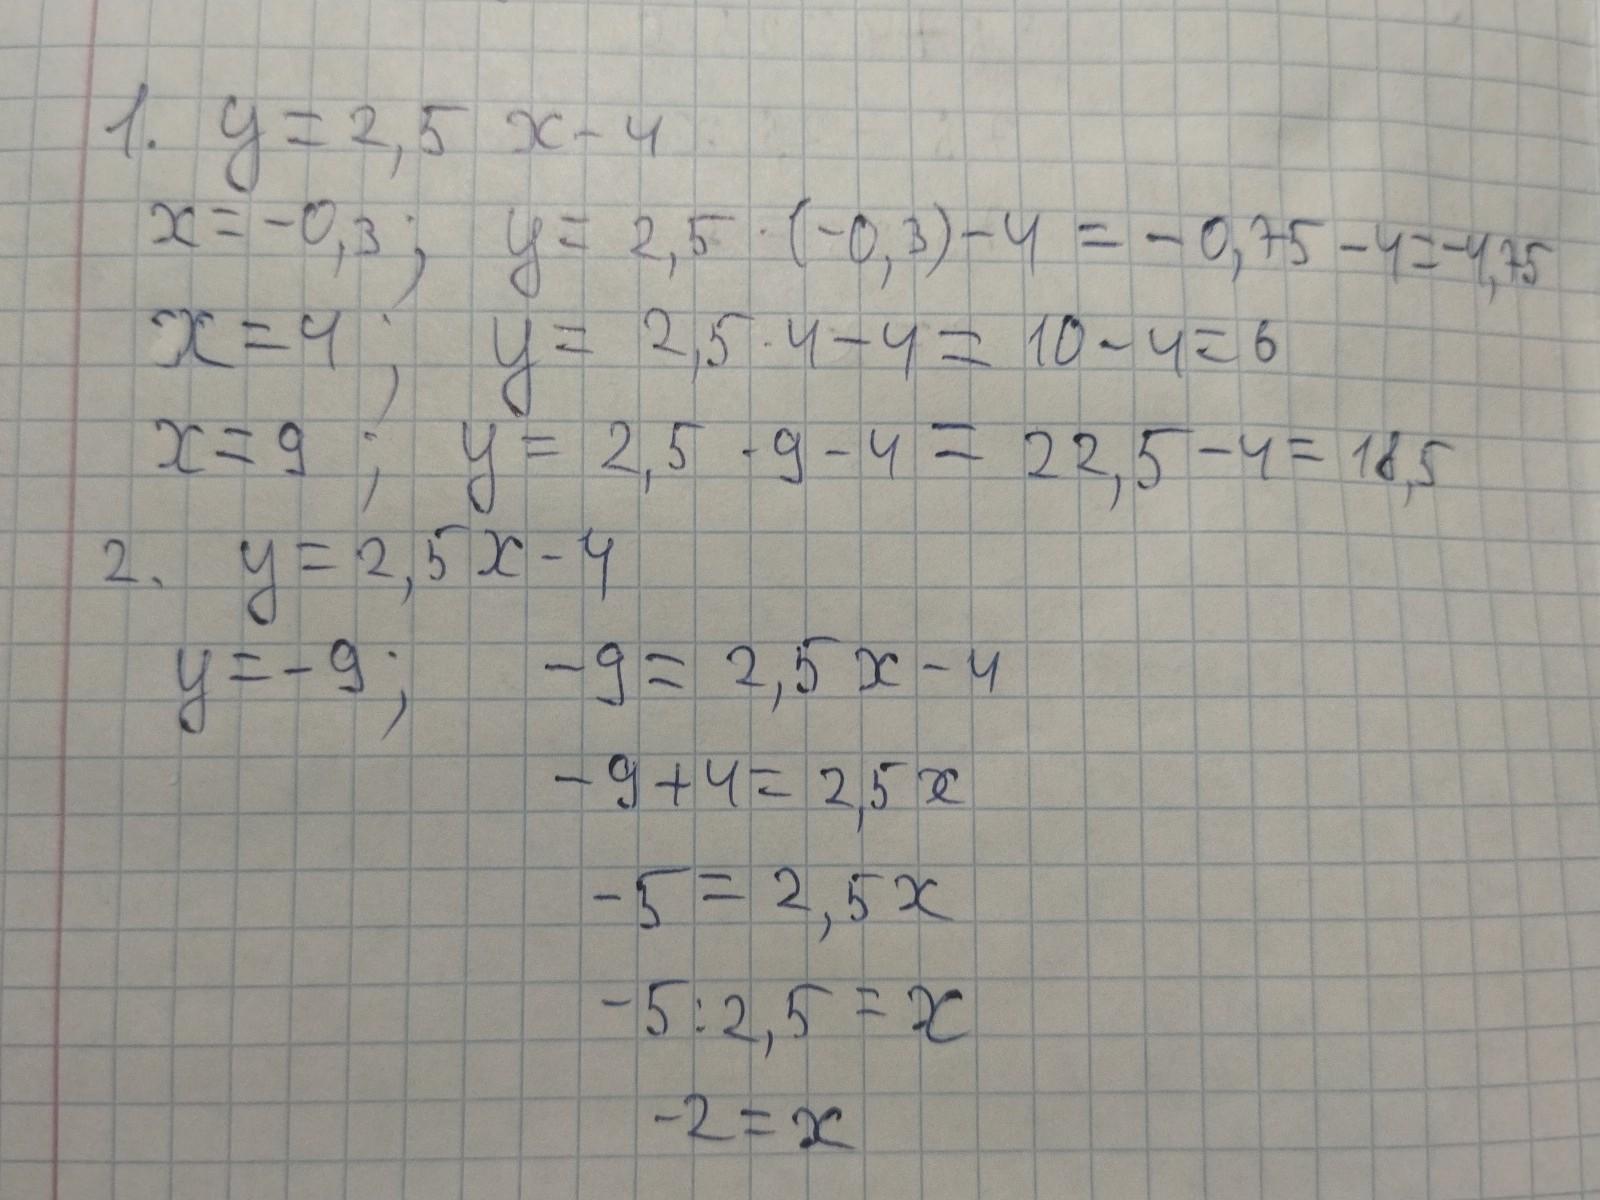 1. y = 2,5 x - 4
x = -0,3; y = 2,5 · (-0,3) - 4 = -0,75 - 4 = -4,75
x = 4; y = 2,5 · 4 - 4 = 10 - 4 = 6
x = 9; y = 2,5 · 9 - 4 = 22,5 - 4 = 18,5
2. y = 2,5x - 4
y = -9; -9 = 2,5x - 4
-9 + 4 = 2,5x
-5 = 2,5x
-5 : 2,5 = x
-2 = x